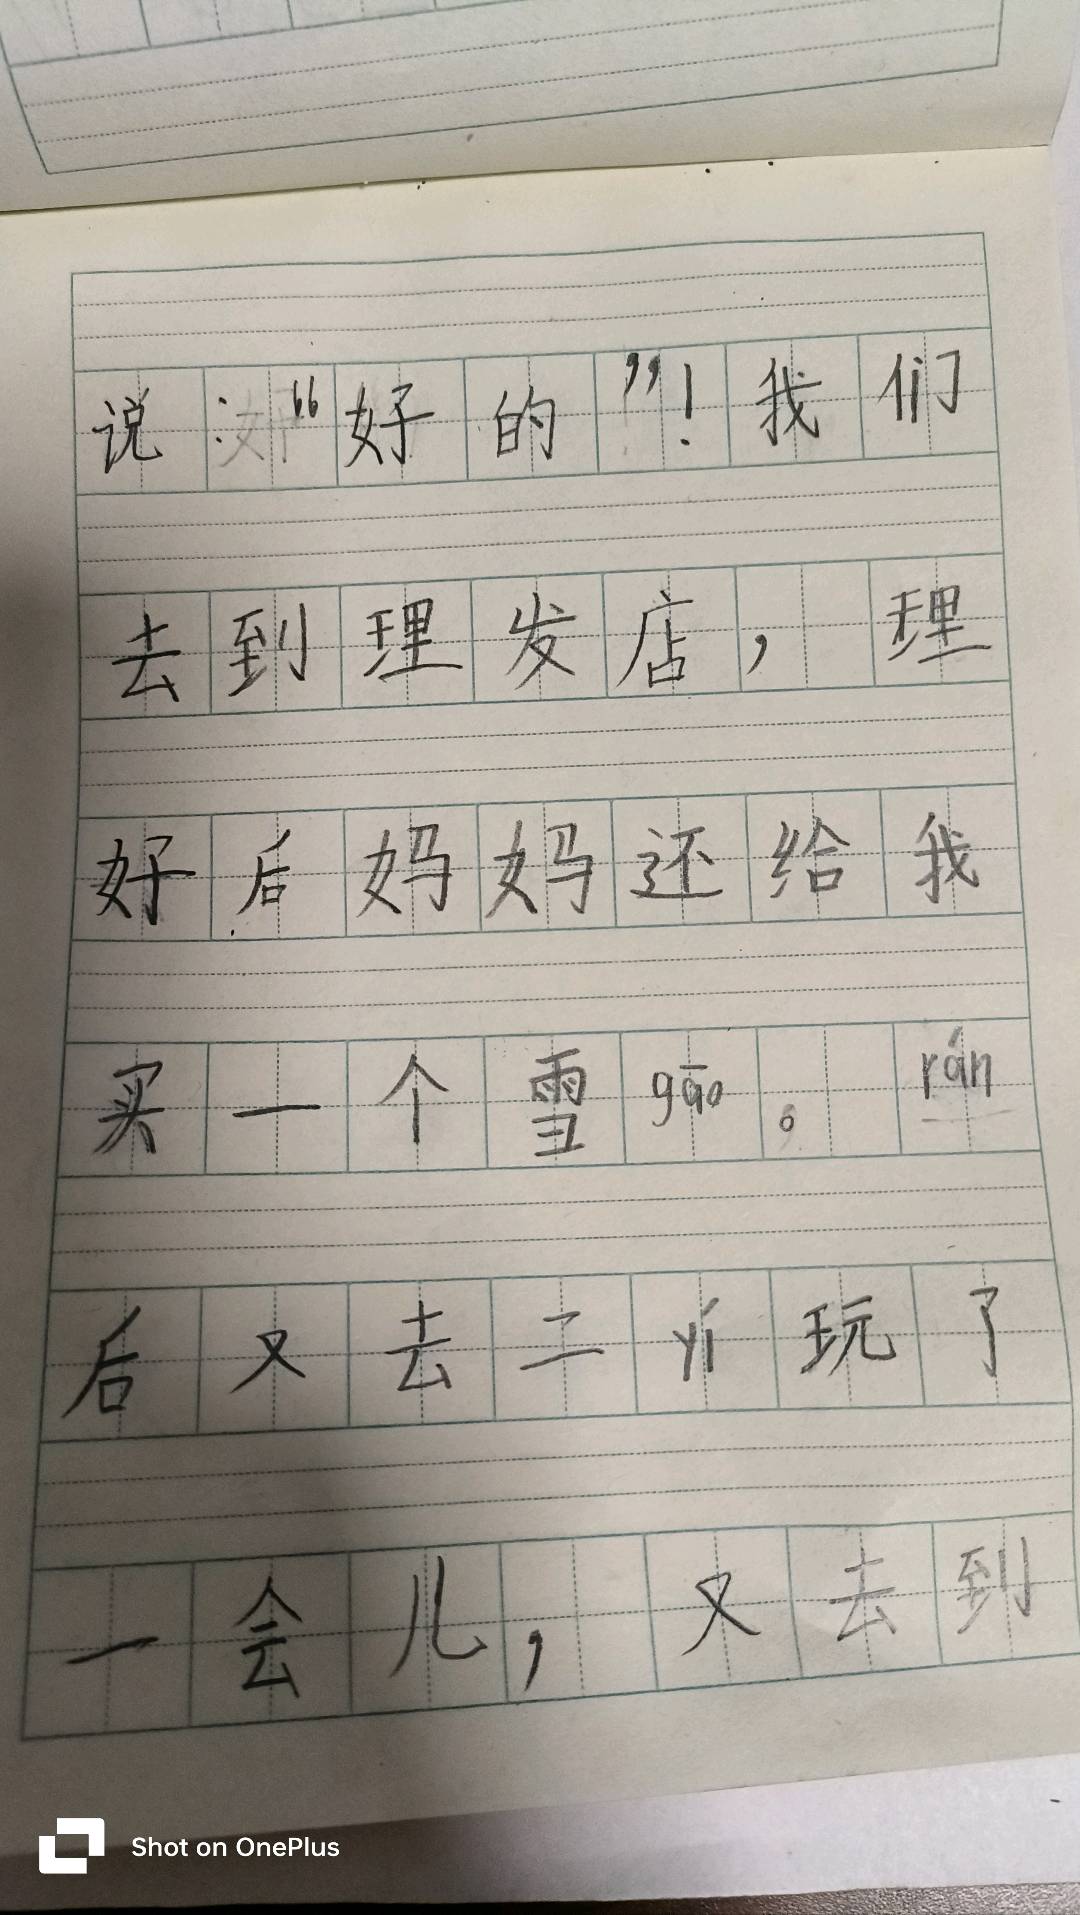 说:“好的”!我们
去到理发店,理
好后妈妈还给我
买一个雪gāo。rán
后又去二yí玩了
一会儿,又去到
Shot on OnePlus